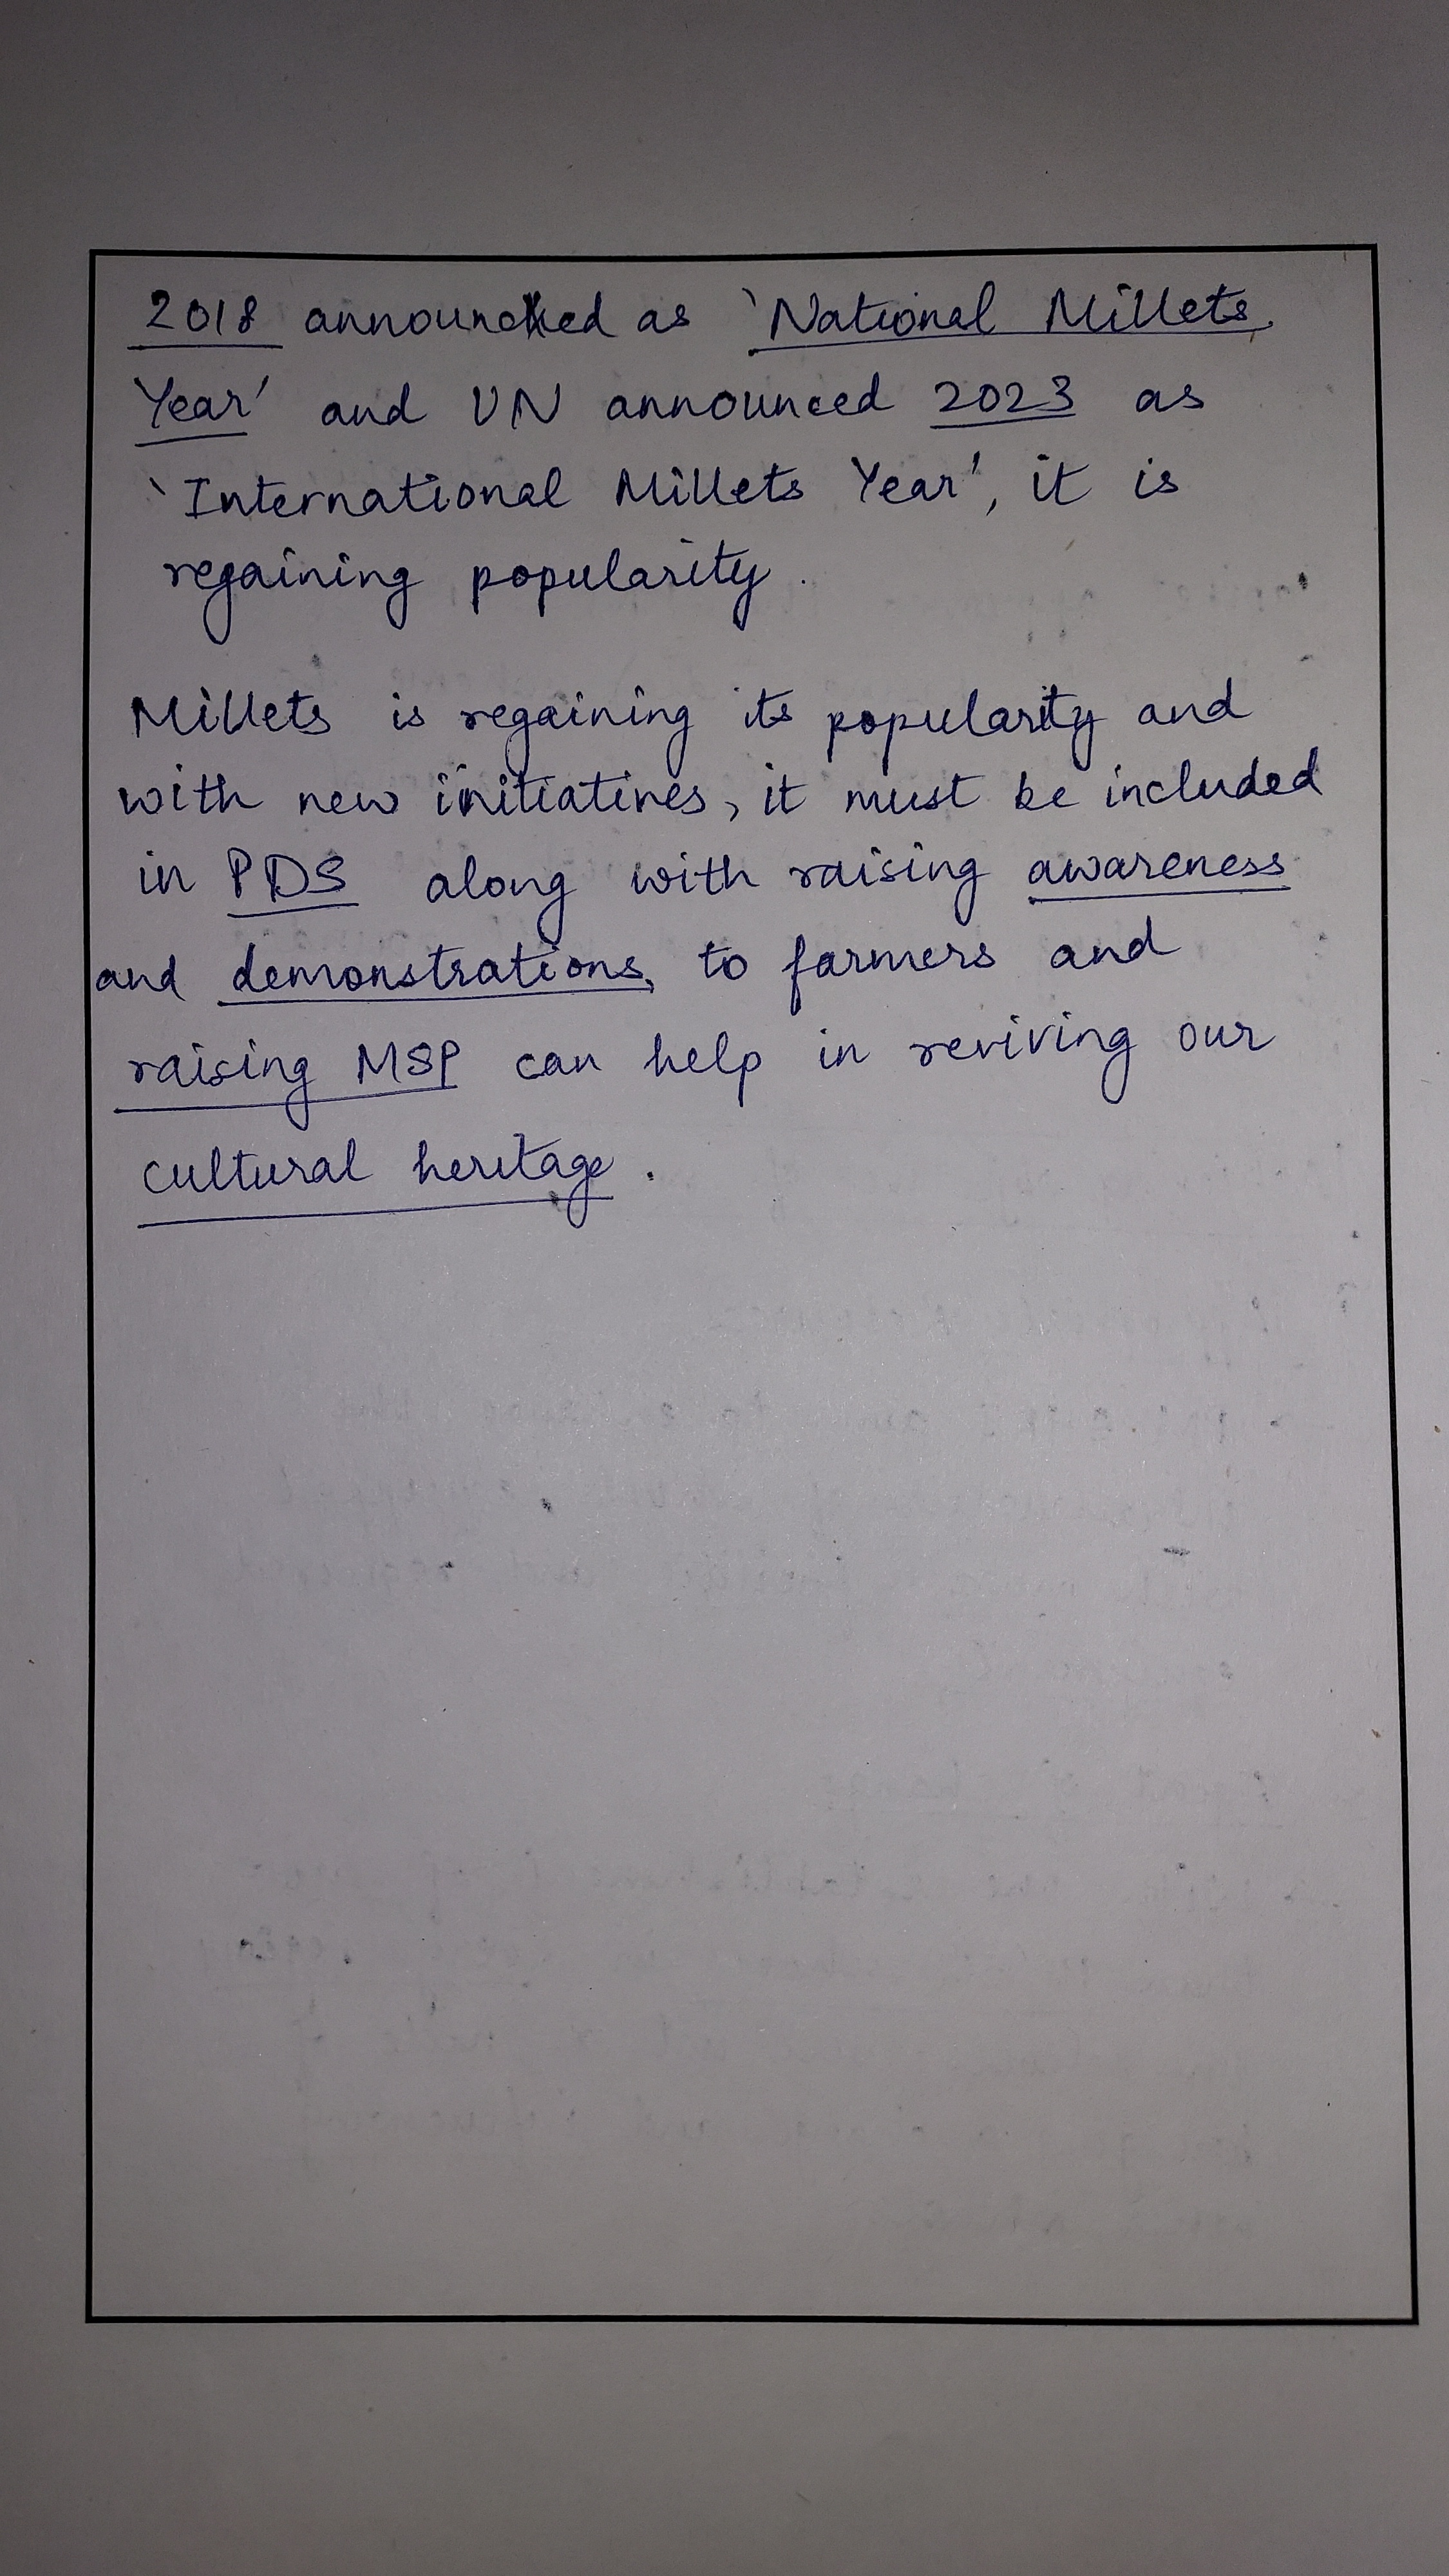 2018 announced as 'National Millets
Year' and UN announced 2023 as
'International Millets Year', it is
regaining popularity.
Millets is regaining its popularity and
with new initiatives, it must be included
in PDS along with raising awareness
and demonstrations, to farmers and
raising MSP can help in reviving our
cultural heritage.